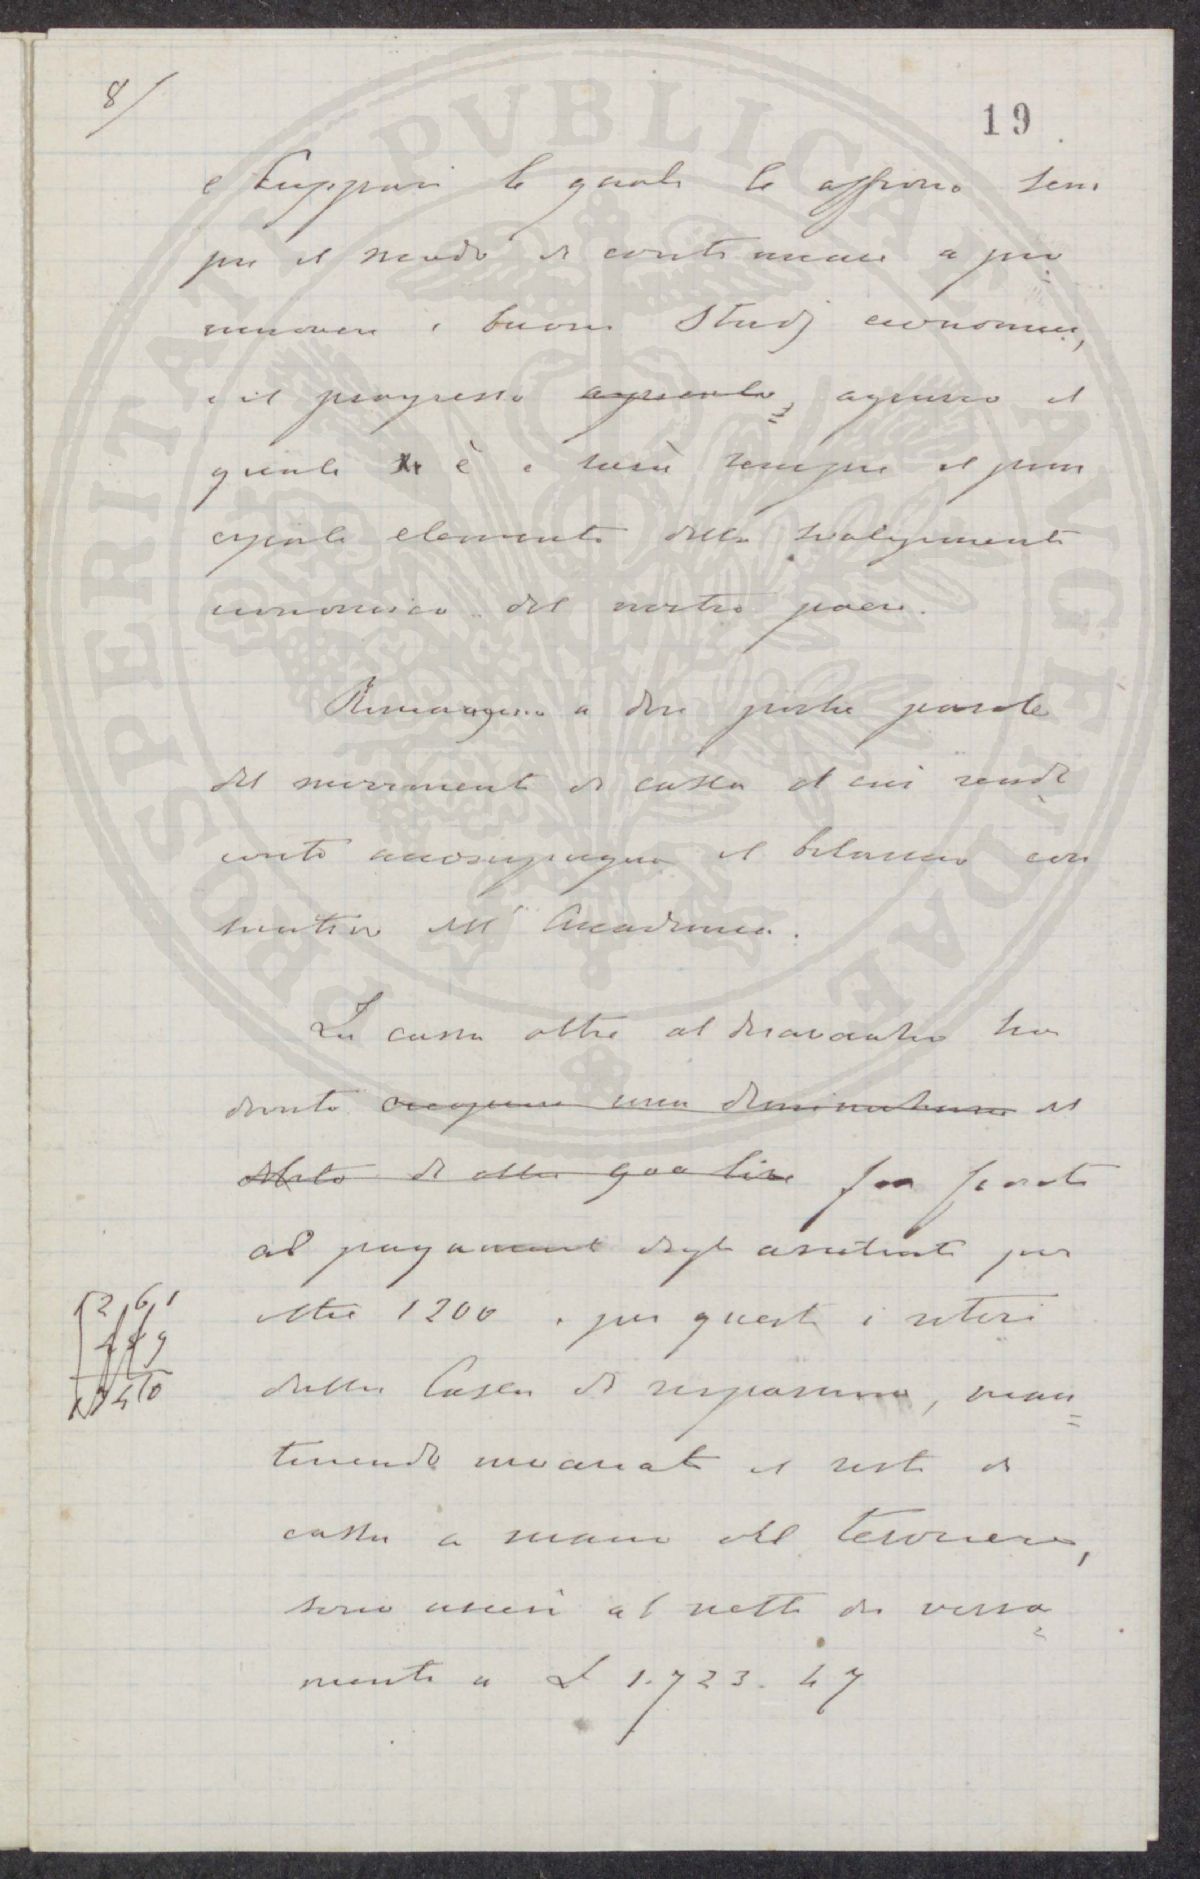 8/
19
e Cuppari le quali le offrono sem
pre il modo di continuare a pro
muovere i buoni Studj economici,
e il progresso agricolo, agrario il
quale è e sarà sempre il prin
cipale elemento dello svolgimento
economico del nostro paese.
Rimangono a dire poche parole
del movimento di cassa il cui rendi
conto accompagna il bilancio con
suntivo dell' Accademia.
La cassa oltre al disavanzo ha
dovuto una diminuzione
di oltre lire far fronte
al pagamento degli arretrati per
oltre 1200 e per questi i ritiri
dalla Cassa di risparmio, man
tenendo invariato il resto di
cassa a mano del tesoriere,
sono ascesi al netto dei versa
menti a L 1.723.47
1261
449
PROSPERITATI PVBLICAE AVGENDAE